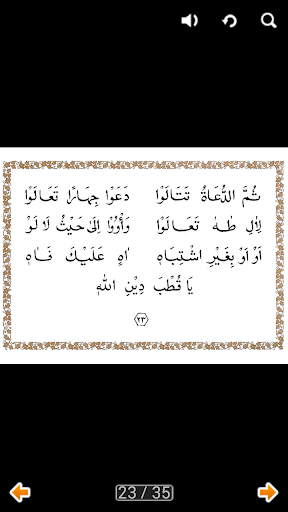 ثُمَّ الدُّعَاةُ تَتَالَوْا دَعَوْا جِهَارًا تَعَالَوْا
لِاٰلِ طٰهٰ تَعَالَوْا وَأْوُرُوْا اِلىٰ حَيْثُ لَا لَوْ
اَوْ اَوْ بِغَيْرِ اشْتِبَاهِ اٰهٍ عَلَيْكَ فَاٰهٖ
يَا قُطْبَ دِيْنِ اللهِ
٢٣
23 / 35